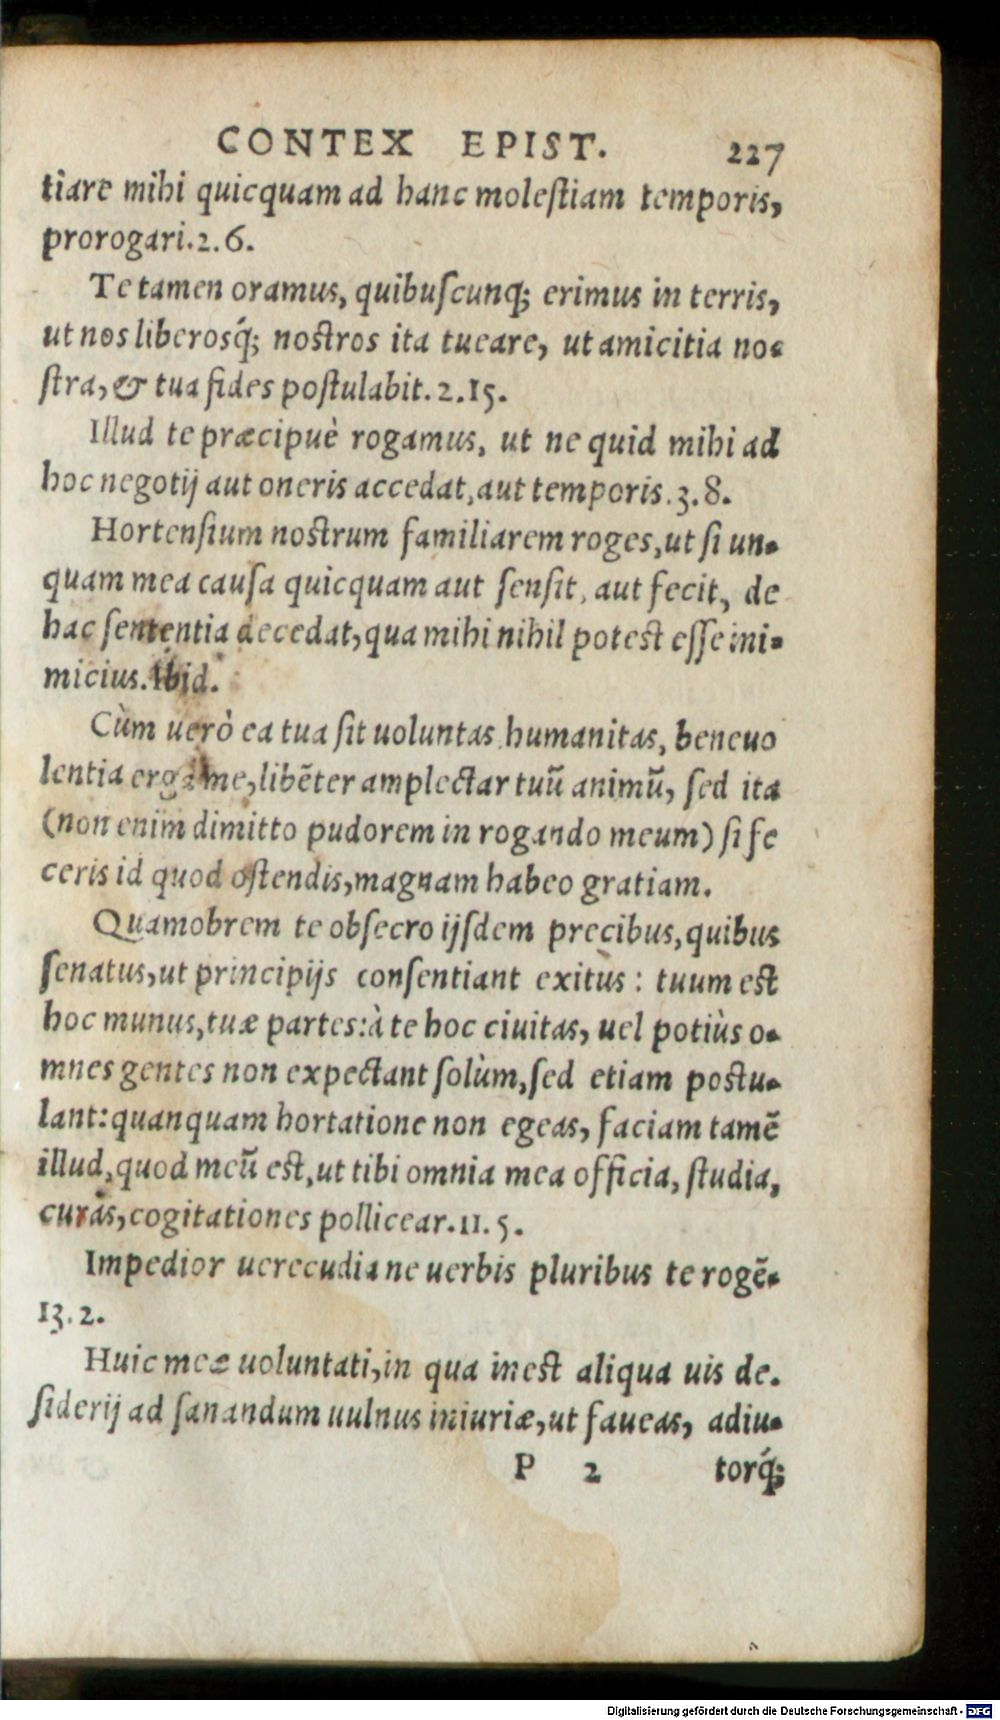 CONTEX EPIST. 227
tiare mihi quicquam ad hanc molestiam temporis,
prorogari. 2. 6.
Te tamen oramus, quibuscunq́; erimus in terris,
ut nos liberosq́; nostros ita tueare, ut amicitia no-
stra, & tua fides postulabit. 2. 15.
Illud te præcipuè rogamus, ut ne quid mihi ad
hoc negotij aut oneris accedat, aut temporis. 3. 8.
Hortensium nostrum familiarem roges, ut si un-
quam mea causa quicquam aut sensit, aut fecit, de
hac sententia decedat, qua mihi nihil potest esse ini-
micius. Ibid.
Cùm uerò ea tua sit uoluntas humanitas, beneuo
lentia erga me, libẽter amplectar tuũ animũ, sed ita
(non enim dimitto pudorem in rogando meum) si fe
ceris id quod ostendis, magnam habeo gratiam.
Quamobrem te obsecro ijsdem precibus, quibus
senatus, ut principijs consentiant exitus: tuum est
hoc munus, tuæ partes: à te hoc ciuitas, uel potiùs o-
mnes gentes non expectant solùm, sed etiam postu-
lant: quanquam hortatione non egeas, faciam tamẽ
illud, quod meũ est, ut tibi omnia mea officia, studia,
curas, cogitationes pollicear. 11. 5.
Impedior uerecudia ne uerbis pluribus te rogẽ-
13. 2.
Huic meæ uoluntati, in qua inest aliqua uis de-
siderij ad sanandum uulnus iniuriæ, ut faueas, adiu-
P 2 torq́;
Digitalisierung gefördert durch die Deutsche Forschungsgemeinschaft - DFG